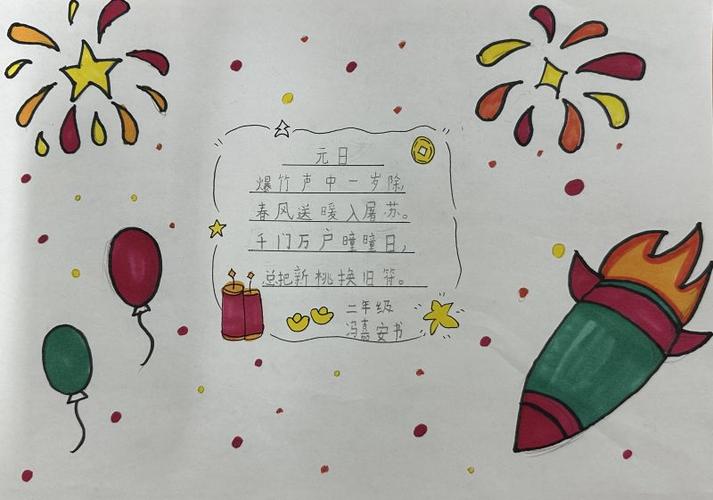 元日
爆竹声中一岁除,
春风送暖入屠苏。
千门万户曈曈日,
总把新桃换旧符。
二年级
冯嘉安书